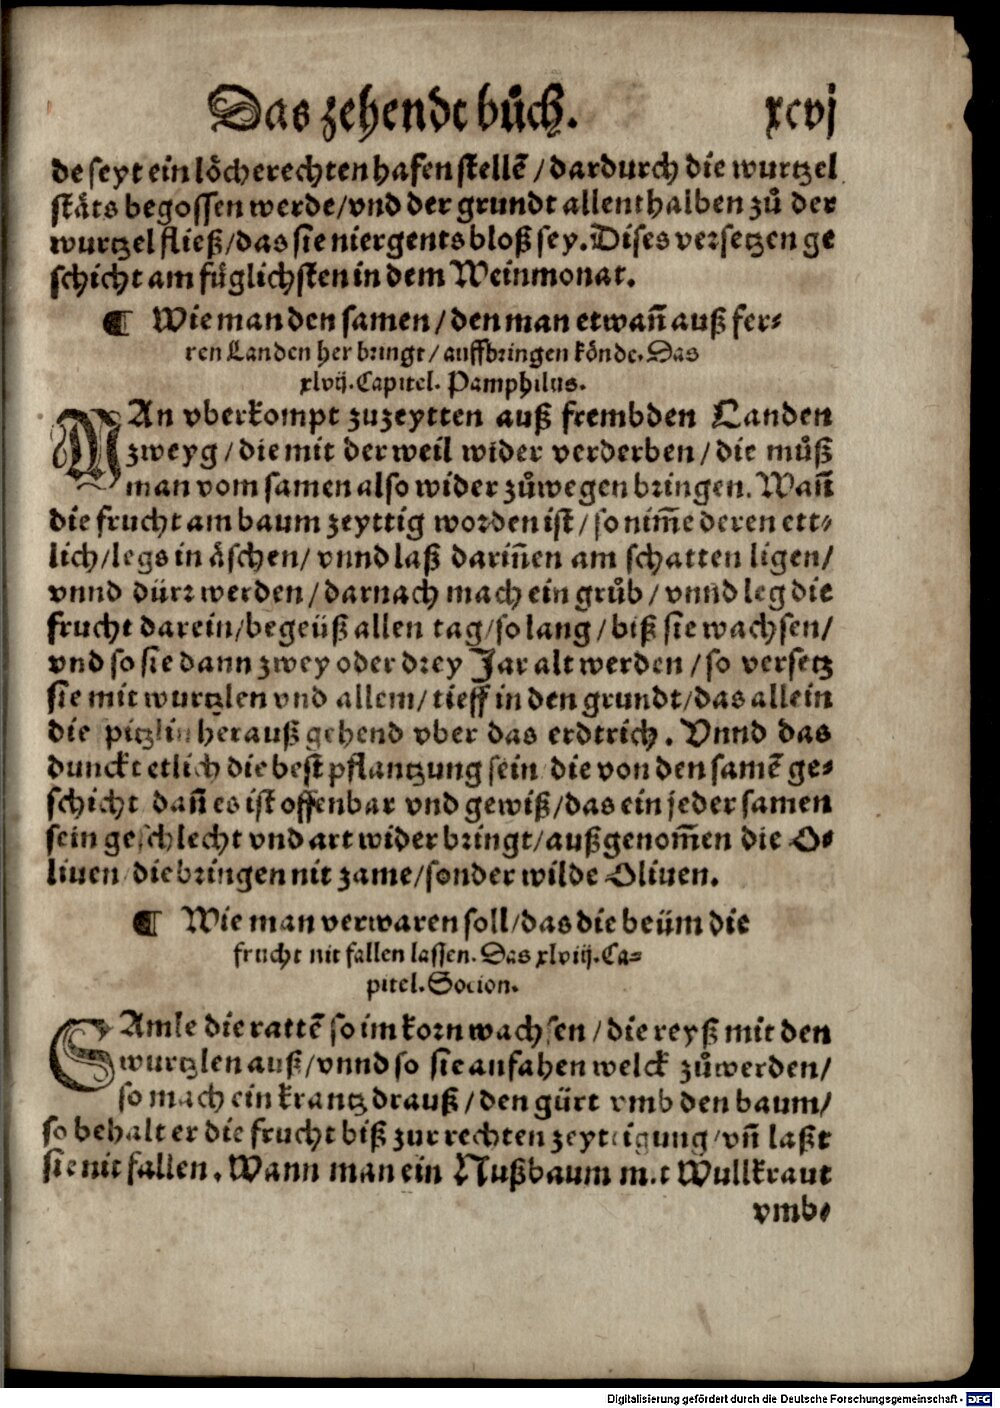 Das zehende bůch. xcvj
de seyt ein löcherechten hafen stellē / dardurch die wurtzel
stäts begossen werde / vnd der grundt allenthalben zů der
wurtzel fließ / das sie niergents bloß sey. Dises versetzen ge
schicht am füglichsten in dem Weinmonat.
¶ Wie man den samen / den man etwañ auß fer⸗
ren Landen her bringt / auffbringen könde. Das
xlvij. Capitel. Pamphilus.
MAn vberkompt zuzeytten auß frembden Landen
zweyg / die mit der weil wider verderben / die můß
man vom samen also wider zůwegen bringen. Wañ
die frucht am baum zeyttig worden ist / so nim̄e deren ett⸗
lich / legs in äschen / vnnd laß dariñen am schatten ligen /
vnnd dürr werden / darnach mach ein grůb / vnnd leg die
frucht darein / begeüß allen tag / so lang / biß sie wachsen /
vnd so sie dann zwey oder drey Jar alt werden / so versetz
sie mit wurtzlen vnd allem / tieff in den grundt / das allein
die spitzlin herauß gehend vber das erdtrich. Vnnd das
dunckt etlich die best pflantzung sein die von den samē ge⸗
schicht dañ es ist offenbar vnd gewiß / das ein jeder samen
sein geschlecht vnd art wider bringt / außgenom̄en die O⸗
liuen / die bringen nit zame / sonder wilde Oliuen.
¶ Wie man verwaren soll / das die beüm die
frucht nit fallen lassen. Das xlviij. Ca⸗
pitel. Socion.
SAmle die rattē so im korn wachsen / die reyß mit den
wurtzlen auß / vnnd so sie anfahen welck zůwerden /
so mach ein krantz drauß / den gürt vmb den baum /
so behalt er die frucht biß zur rechten zeyttigung / vñ laßt
sie nit fallen. Wann man ein Nußbaum mit Wullkraut
vmb⸗
Digitalisierung gefördert durch die Deutsche Forschungsgemeinschaft - DFG